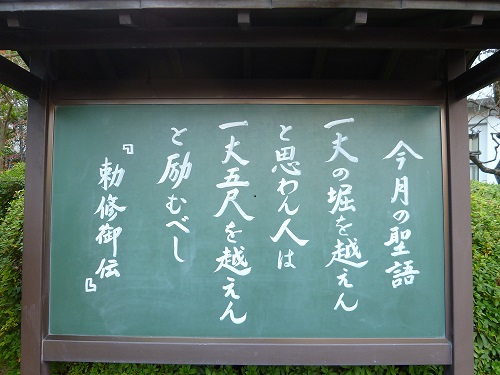 今月の聖語
一丈の堀を越えん
と思わん人は
一丈五尺を越えん
と励むべし
『勅修御伝』